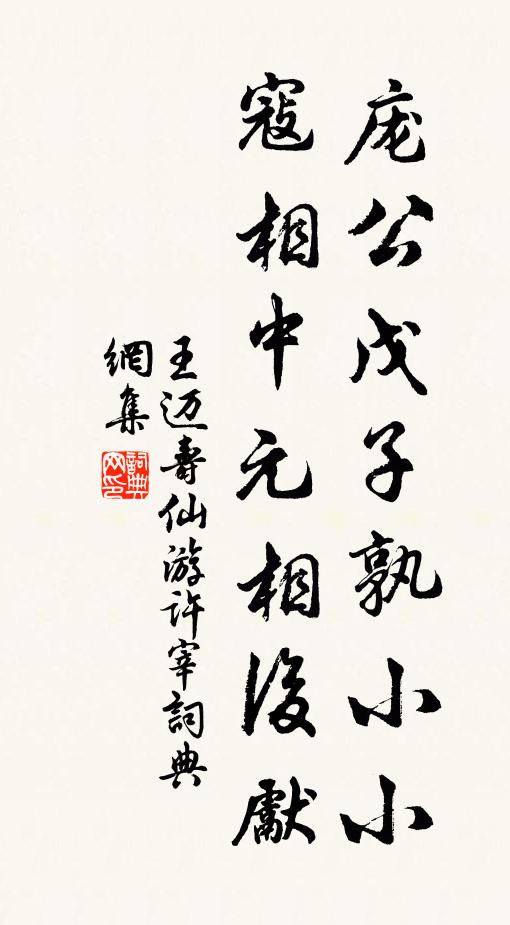 庞公戊子孰小小
寇相中元相後獻
王迈壽仙游许宰詞典
網集
詞典網印